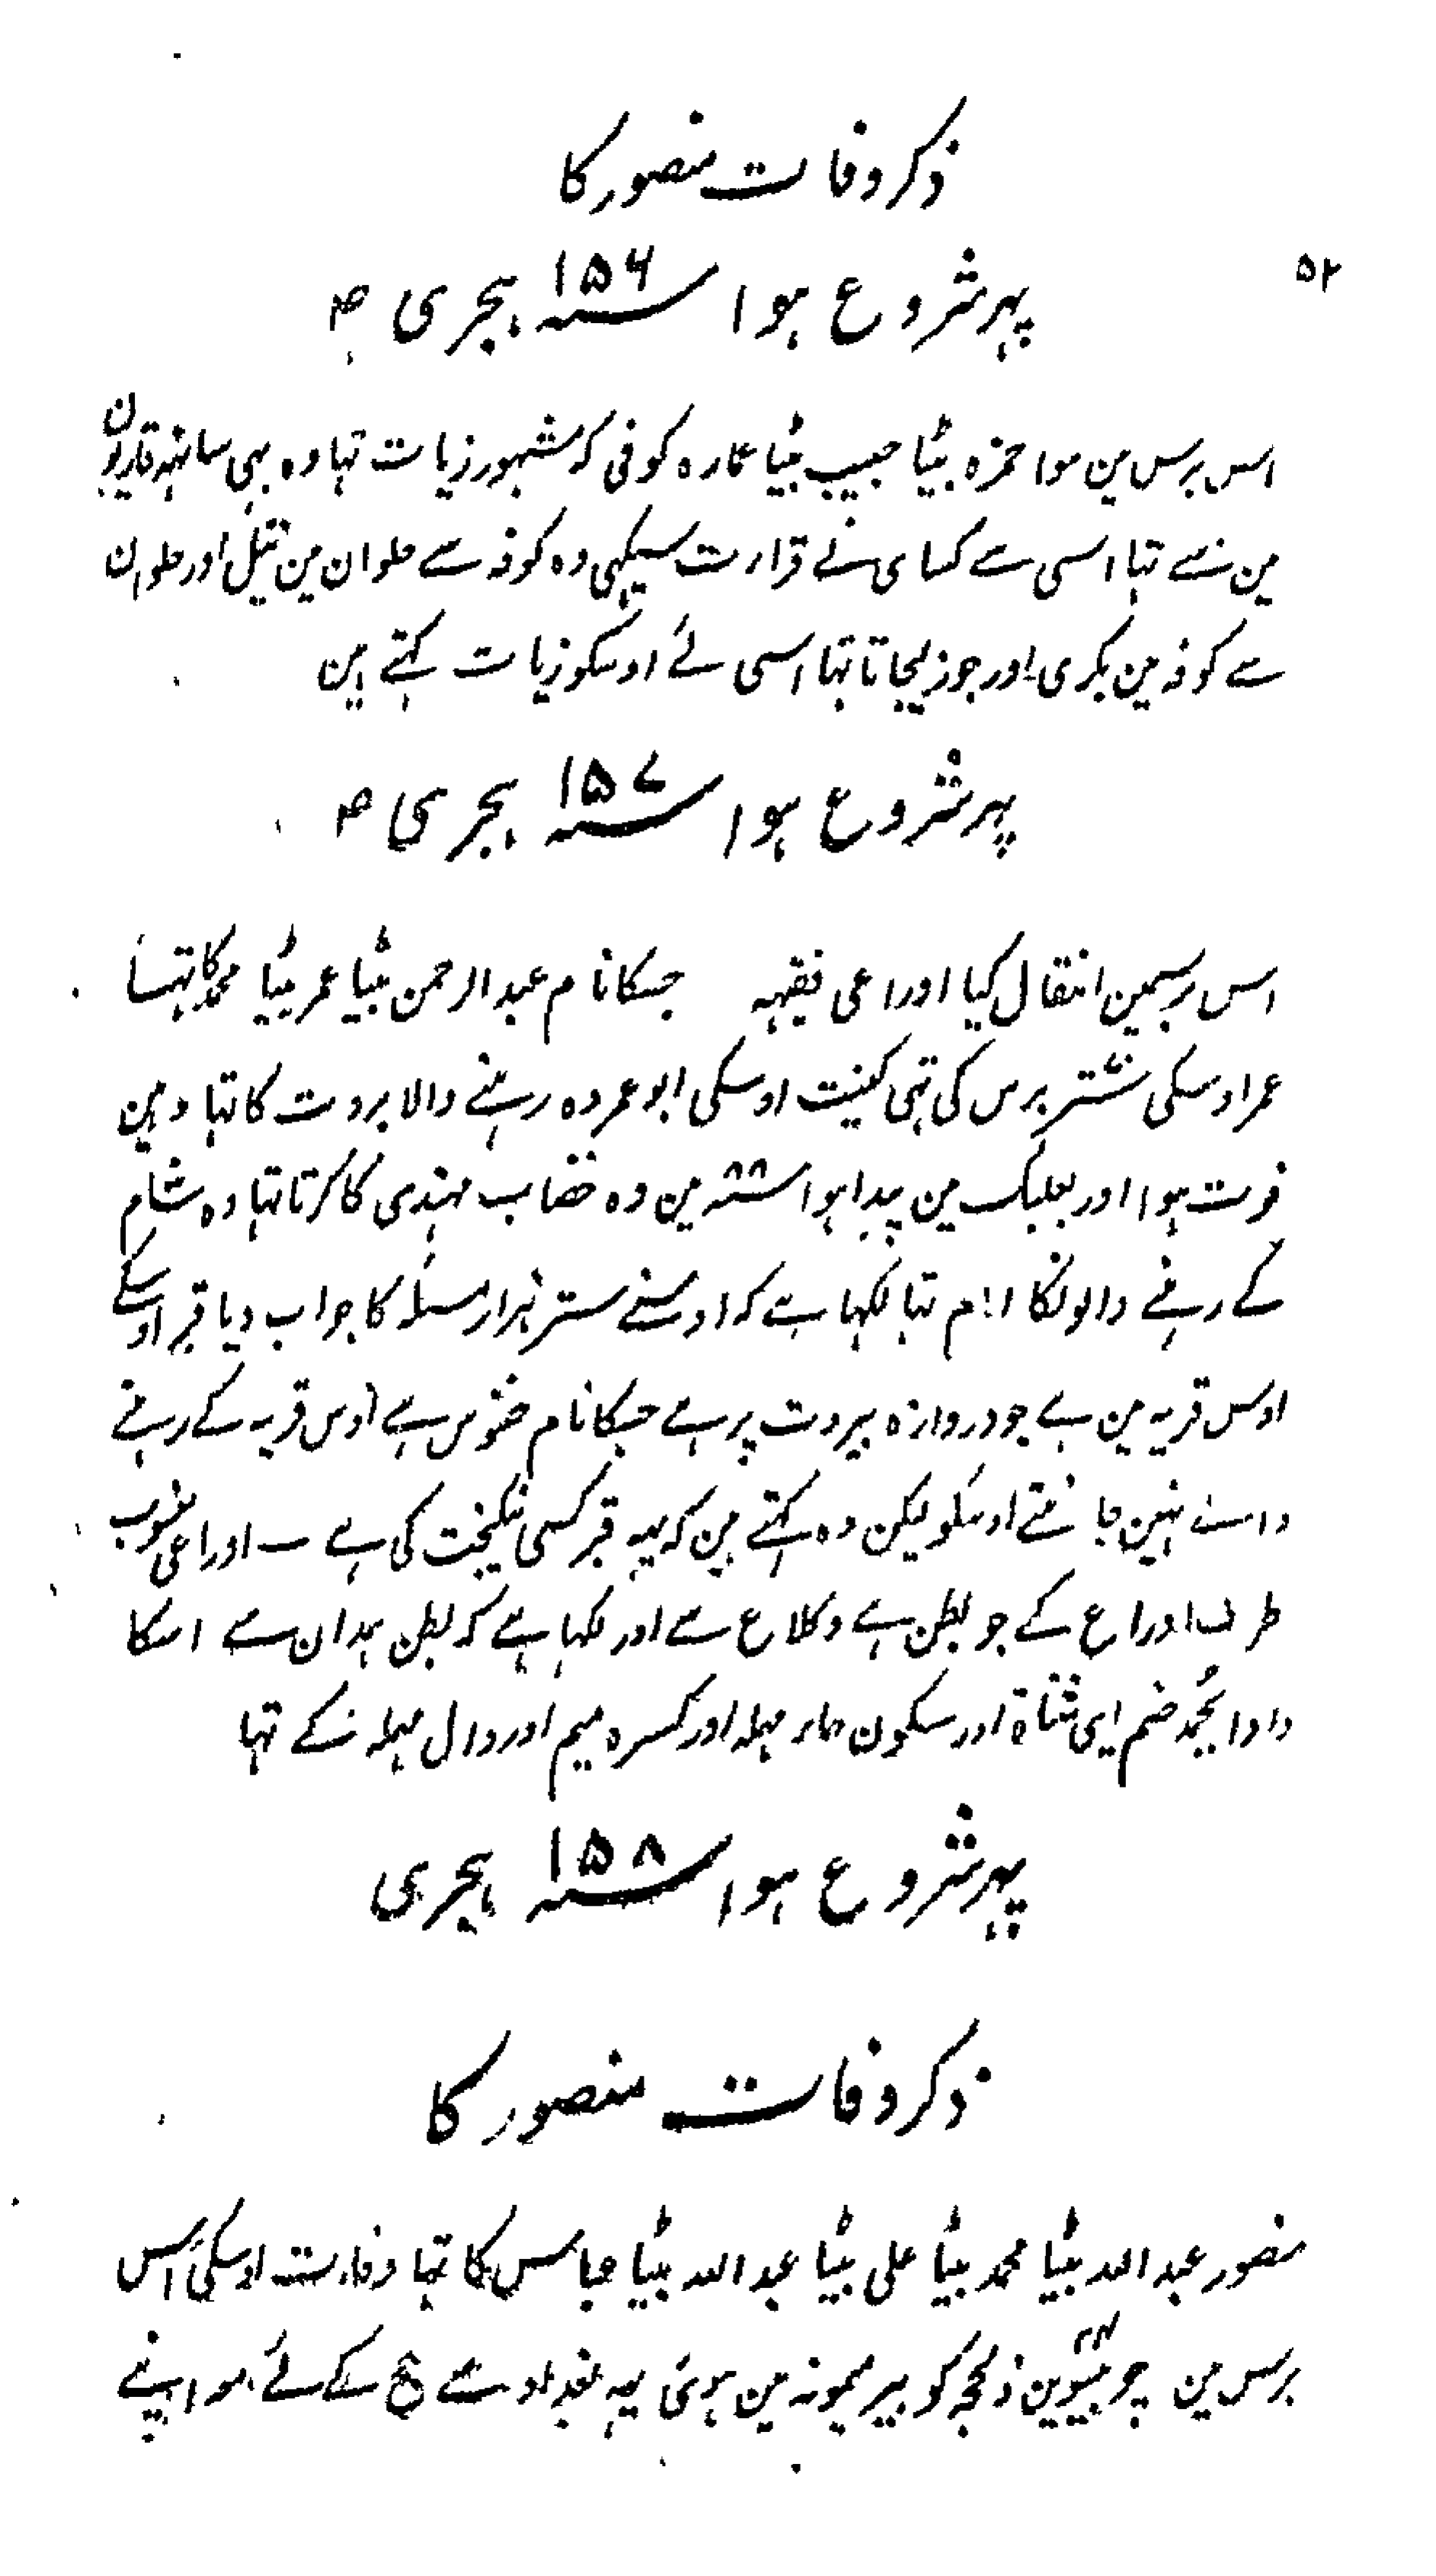 ذکر وفات منصور کا
۵۲
پہر شروع ہوا سنہ ۱۵۶ ہجری
اس برس مین موا حمزہ بیٹا حبیب بیٹا عمارہ کوفی کہ مشہور زیات تہا وہ بہی ساتہہ قاریون
مین سے تہا اسی سے کسای نے قرارت سیکہی وہ کوفہ سے حلوان مین تیل اور حلوان
سے کوفہ مین بکری اور جوز لیجاتا تہا اسی لئے اوسکو زیات کہتے ہین
پہر شروع ہوا سنہ ۱۵۷ ہجری
اس برسمین انتقال کیا اوراعی فقیہہ جسکا نام عبد الرحمن بیٹا عمر بیٹا محمد کا تہا
عمر اوسکی ستتر برس کی تہی کنیت اوسکی ابو عمر وہ رہنے والا بروت کا تہا وہین
فوت ہوا اور بعلبک مین پیدا ہوا سنہ ۸۸ مین وہ خضاب مہندی کا کرتا تہا وہ شام
کے رہنے والونکا امام تہا لکہا ہے کہ اوسنے ستر ہزار مسئلہ کا جواب دیا قبر اوسکے
اوس قریہ مین ہے جو دروازہ بیروت پر ہے جسکا نام خنوس ہے اوس قریہ کے رہنے
والے نہین جانتے اوسکو لیکن وہ کہتے ہین کہ یہہ قبر کسی نیکبخت کی ہے ۔ اوراعی منسوب
طرف اوراع کے جو بطن ہے ذکلاع سے اور لکہا ہے کہ بطن ہمدان سے اسکا
دادا یحمد ضم ایی مثناۃ اور سکون حاء مہملہ اور کسرہ میم اور دال مہملہ کے تہا
پہر شروع ہوا سنہ ۱۵۸ ہجری
ذکر وفات منصور کا
منصور عبد اللہ بیٹا محمد بیٹا علی بیٹا عبد اللہ بیٹا عباس کا تہا وفات اوسکی اس
برس مین چوبیسوین ذلحجہ کو بیر میمونہ مین ہوئی یہہ بغداد سے حج کے لئے موا اپنے